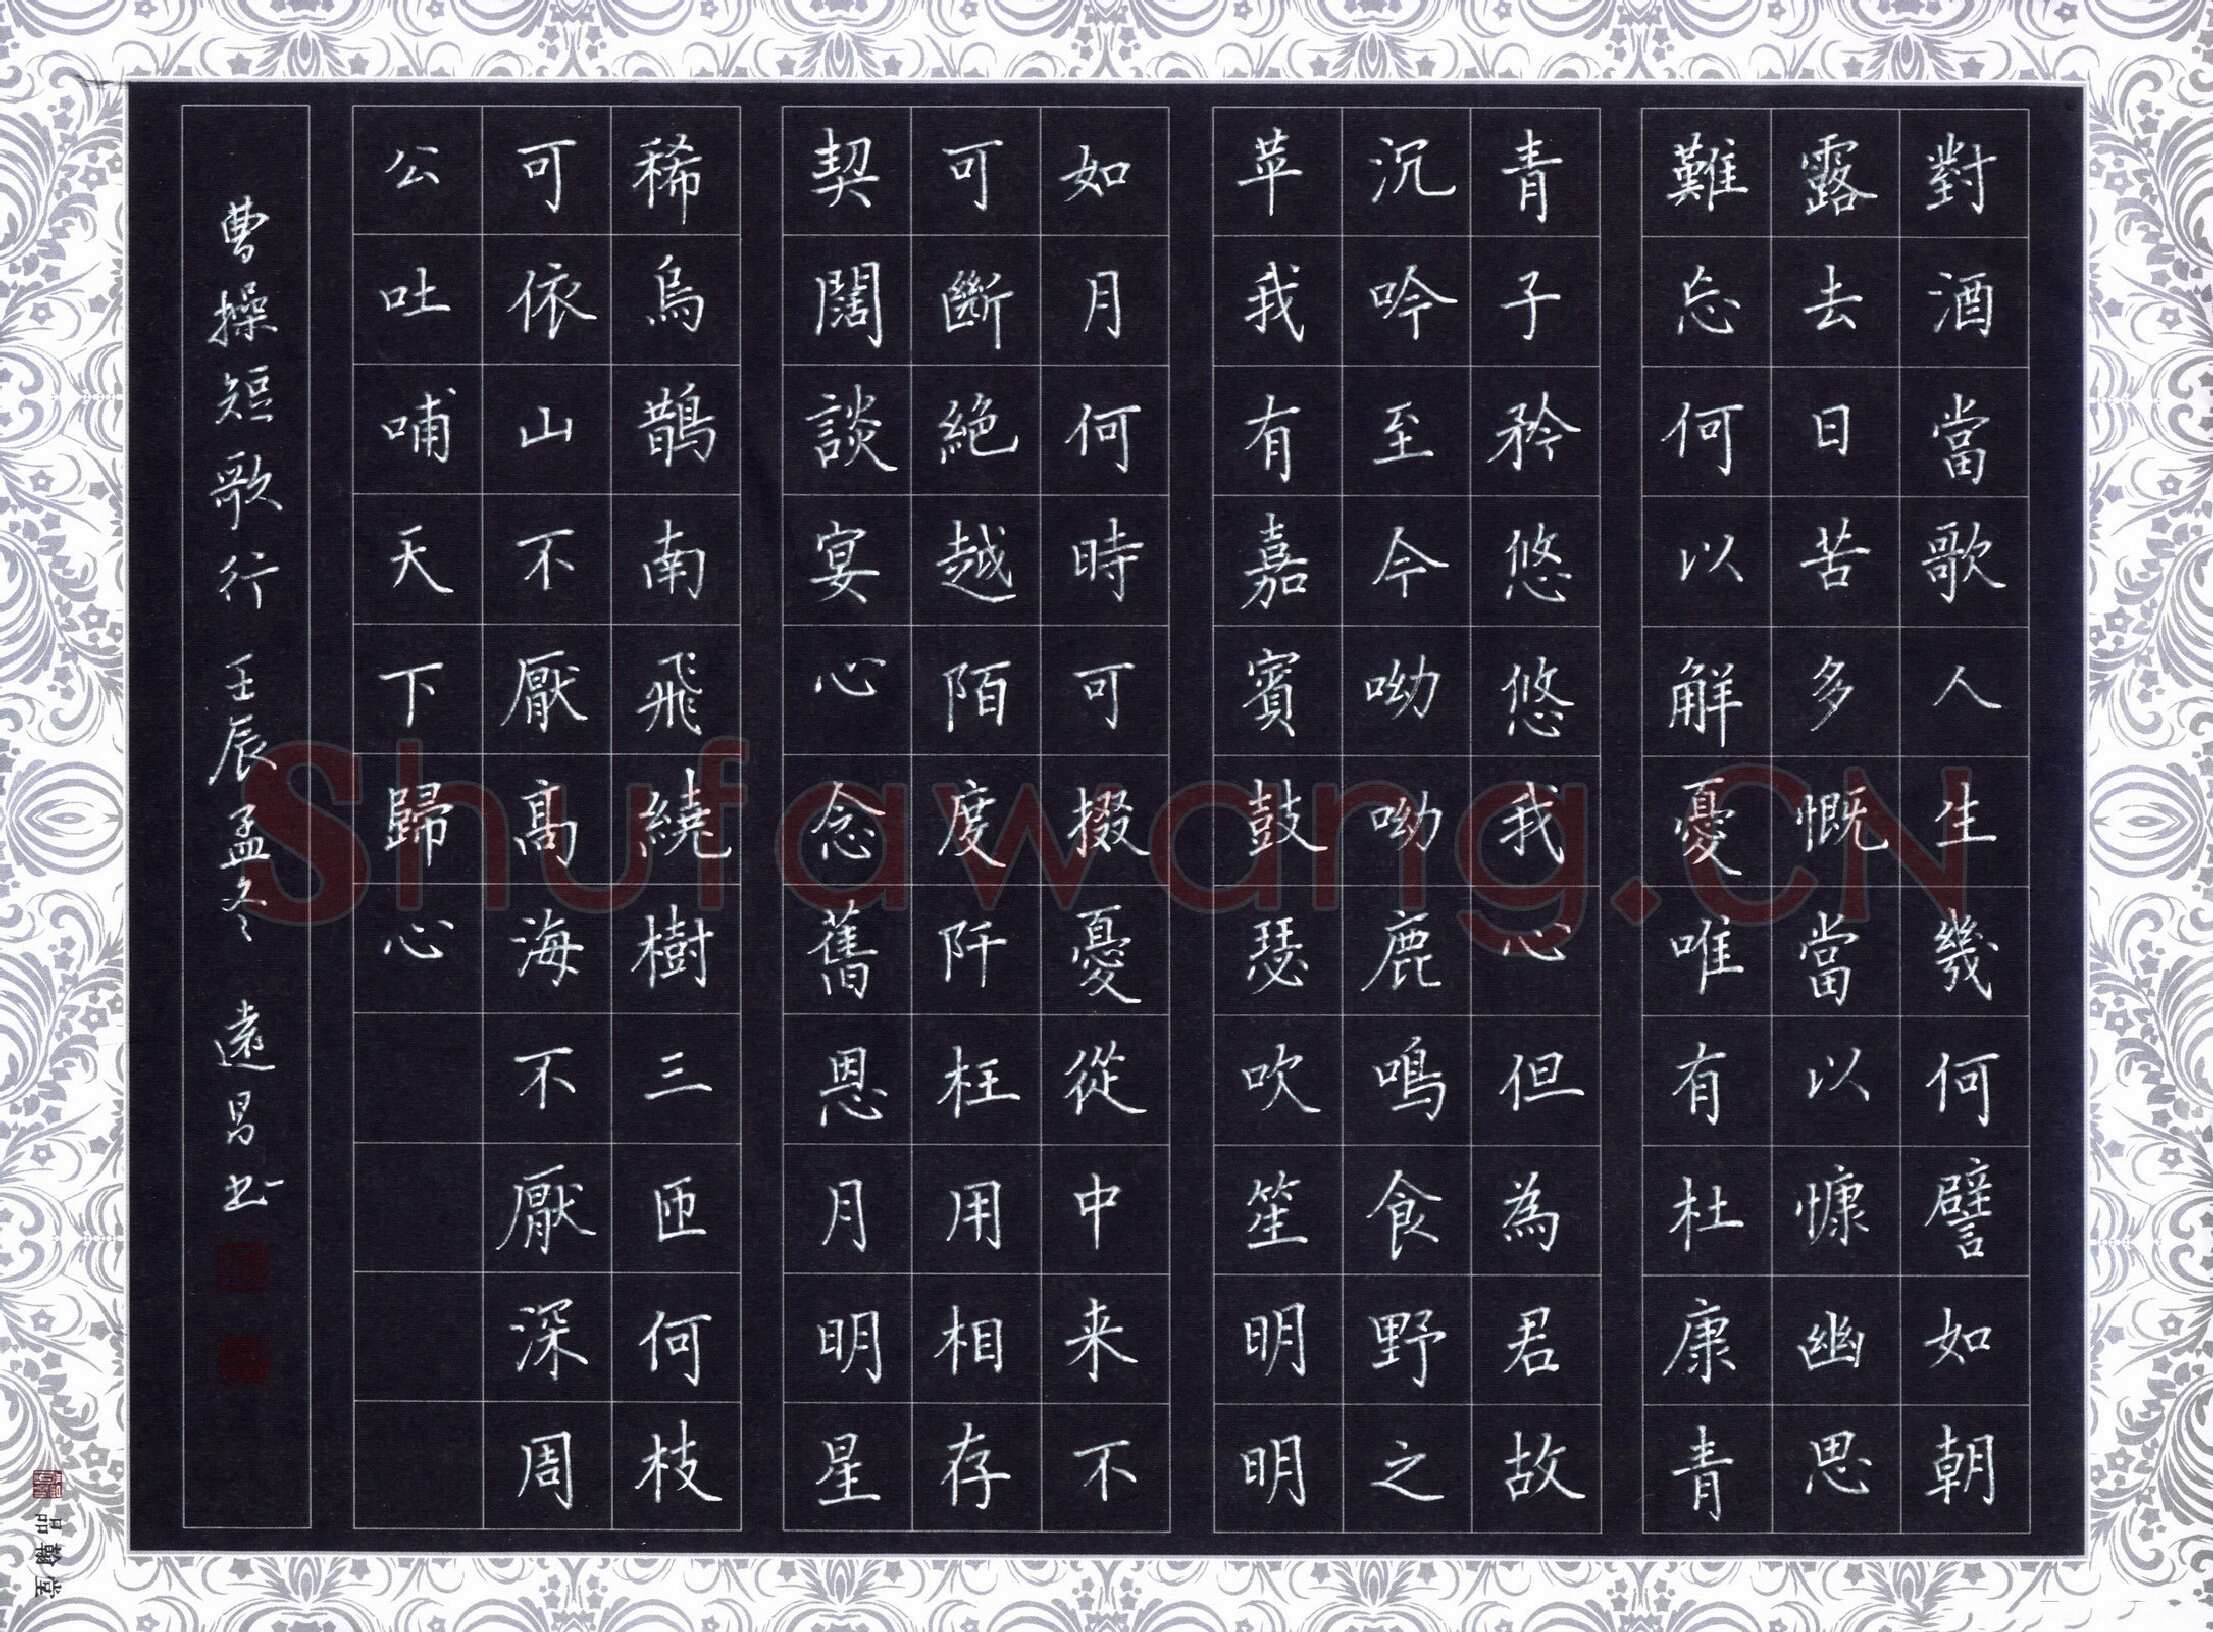 對酒當歌人生幾何譬如朝
露去日苦多慨當以慷幽思
難忘何以解憂唯有杜康青
青子矜悠悠我心但為君故
沉吟至今呦呦鹿鳴食野之
苹我有嘉賓鼓瑟吹笙明明
如月何時可掇憂從中来不
可斷絕越陌度阡枉用相存
契闊談宴心念舊恩月明星
稀烏鵲南飛繞樹三匝何枝
可依山不厭高海不厭深周
公吐哺天下歸心
曹操短歌行 壬辰孟冬 遠昌书
品翰堂
Shufawang.CN